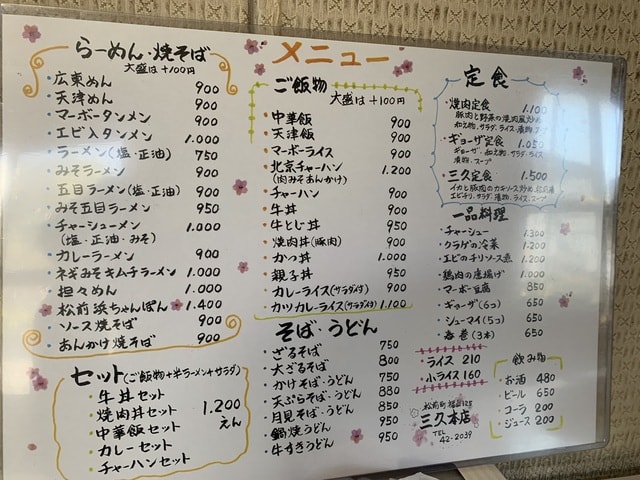 メニュー
らーめん・焼そば
大盛は+100円
・広東めん 900
・天津めん 900
・マーボータンメン 900
・エビ入タンメン 1.000
・ラーメン(塩・正油) 750
・みそラーメン 900
・五目ラーメン(塩、正油) 900
・みそ五目ラーメン 950
・チャーシューメン 1.000
(塩・正油・みそ)
・カレーラーメン 900
・ネギみそキムチラーメン 1.000
・担々めん 1.000
・松前浜ちゃんぽん 1.400
・ソース焼そば 900
・あんかけ焼そば 900
セット(ご飯物+半ラーメン+サラダ)
・牛丼セット
・焼肉丼セット 1.200
・中華飯セット えん
・カレーセット
・チャーハンセット
ご飯物
大盛は+100円
・中華飯 900
・天津飯 900
・マーボーライス 900
・北京チャーハン 1.200
(肉みそあんかけ)
・チャーハン 900
・牛丼 900
・牛とじ丼 950
・焼肉丼(豚肉) 900
・かつ丼 1.000
・親子丼 950
・カレーライス(サラダ付) 900
・カツカレーライス(サラダ付) 1.100
そば・うどん
・ざるそば 750
・大ざるそば 800
・かけそば・うどん 750
・天ぷらそば・うどん 880
・月見そば・うどん 850
・鍋焼うどん 950
・牛すきうどん 950
定食
・焼肉定食 1.100
豚肉と野菜の焼肉風炒め
和え物、サラダ、ライス、漬物、スープ
・ギョーザ定食 1.050
ギョーザ、和え物、サラダ、ライス
漬物、スープ
・三久定食 1.500
イカと豚肉のカキソース炒め、
エビチリ、サラダ、漬物、ライス、スープ
一品料理
・チャーシュー 1.300
・クラゲの冷菜 1.200
・エビのチリソース煮 1.200
・鶏肉の唐揚げ 1.000
・マーボー豆腐 850
・ギョーザ(6つ) 650
・シューマイ(5つ) 650
・春巻(3本) 650
・ライス 210
・小ライス 160
飲み物
・お酒 480
・ビール 650
・コーラ 200
・ジュース 200
松前町
三久本店
TEL
42-2039